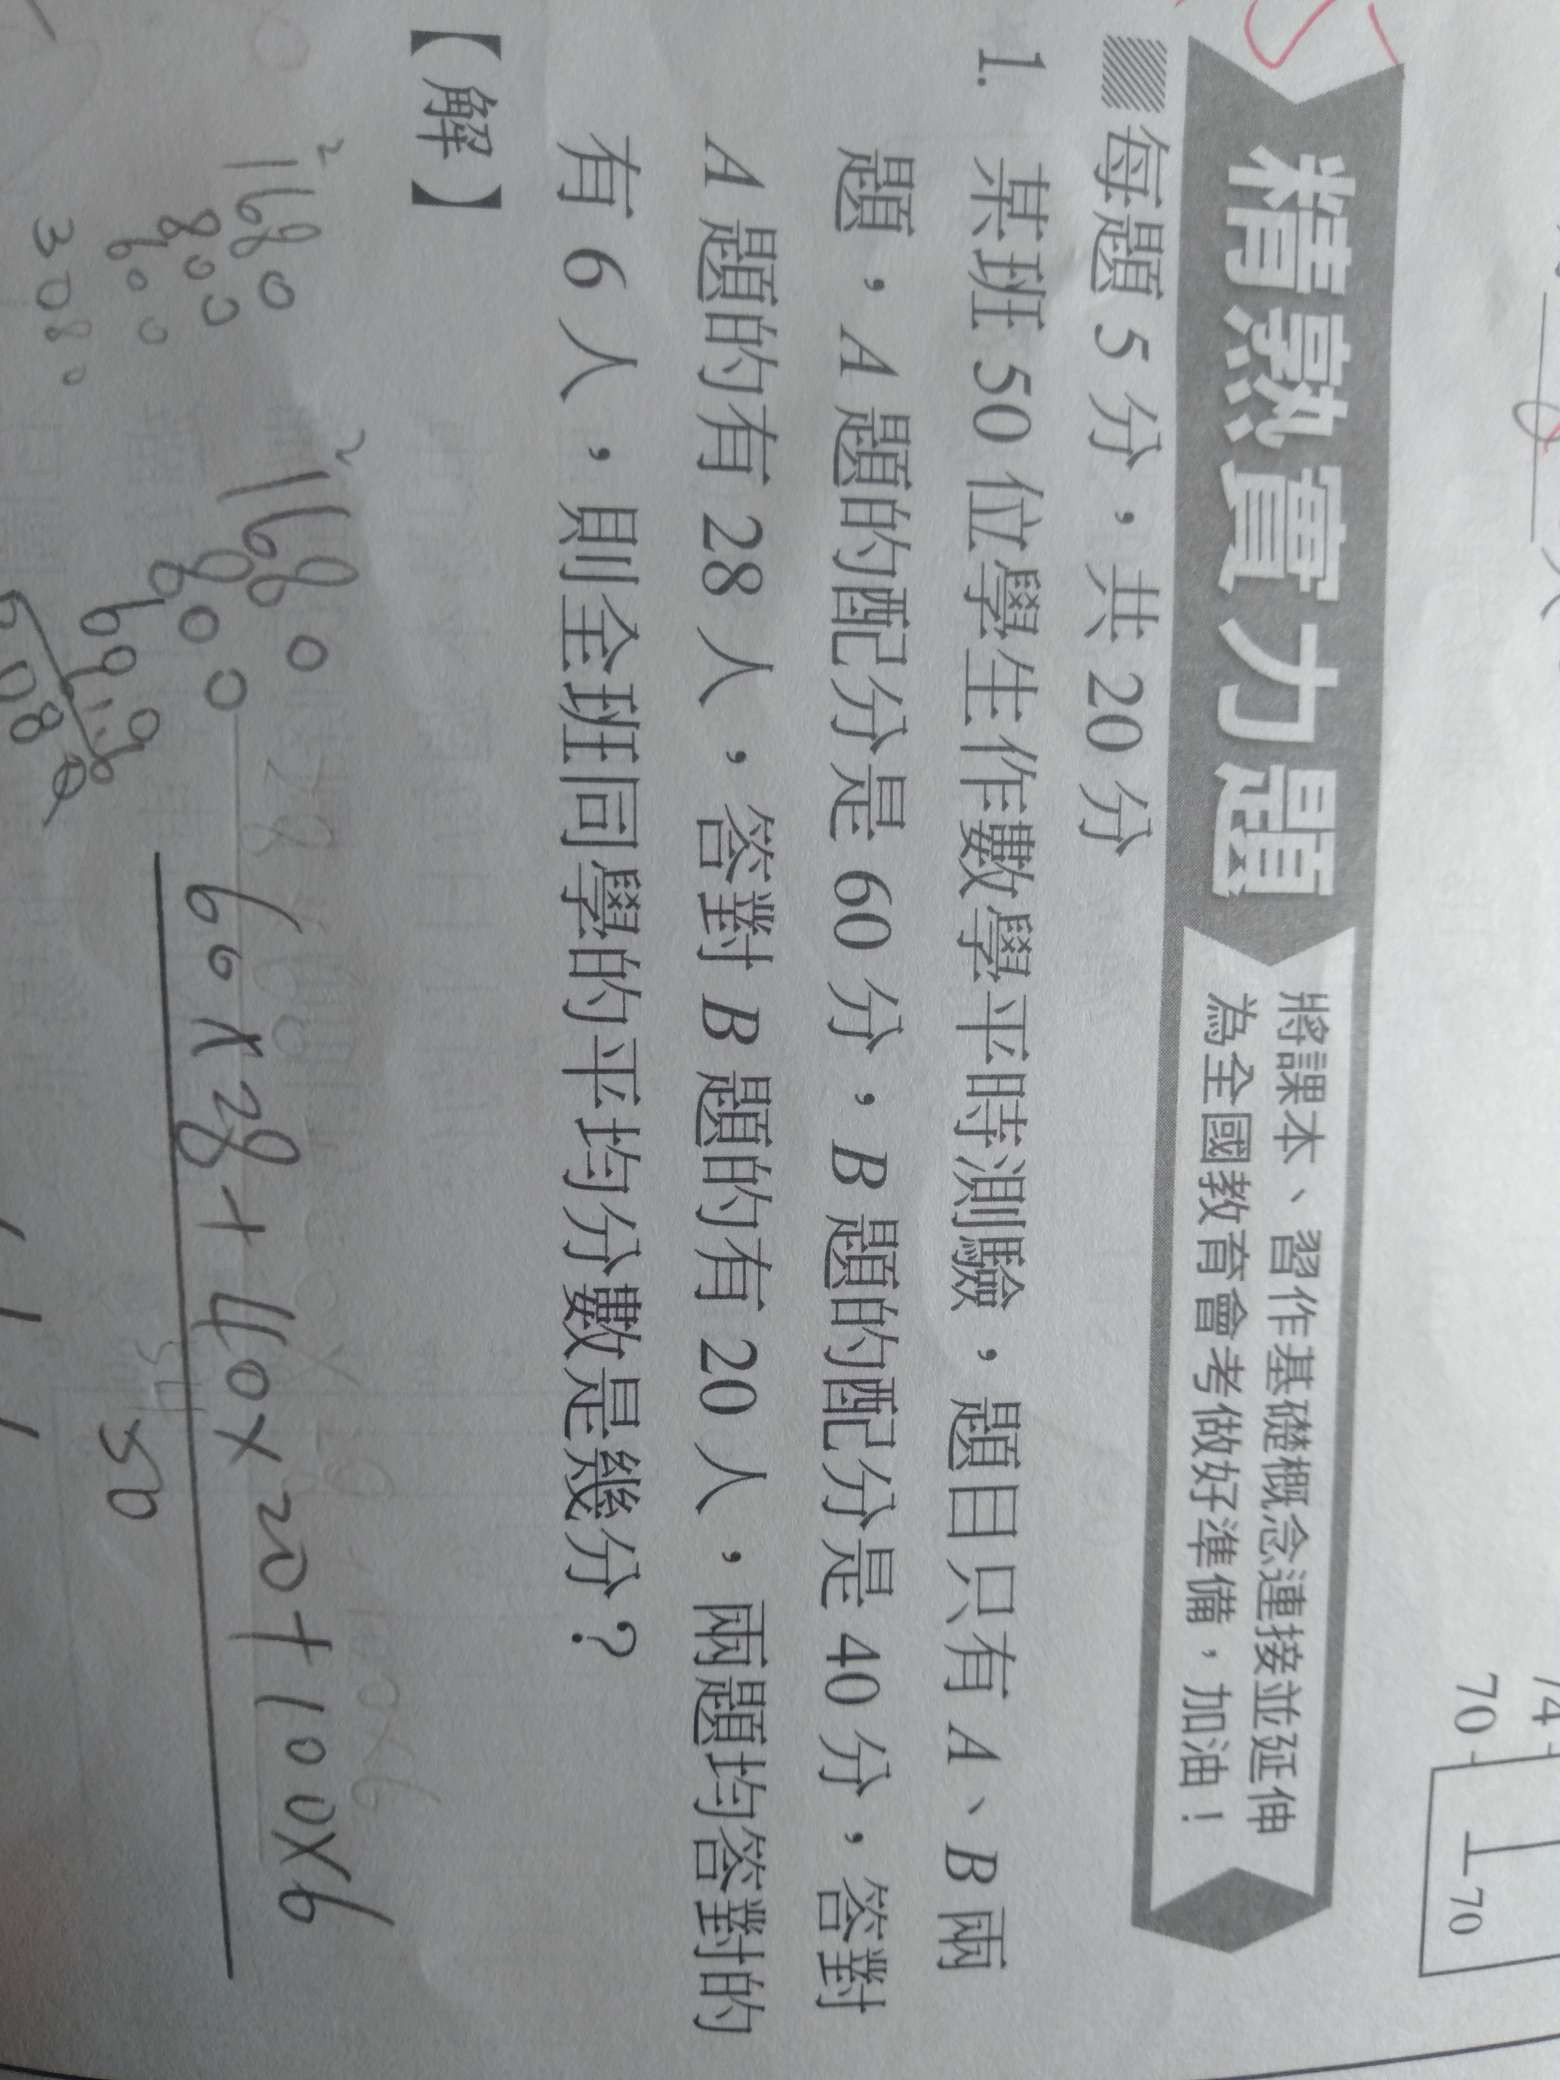 74
70
70
精熟實力題
將課本、習作基礎概念連接並延伸
為全國教育會考做好準備，加油！
每題 5 分，共 20 分
1. 某班 50 位學生作數學平時測驗，題目只有 A、B 兩
題，A 題的配分是 60 分，B 題的配分是 40 分，答對
A 題的有 28 人，答對 B 題的有 20 人，兩題均答對的
有 6 人，則全班同學的平均分數是幾分？
【解】
2
1680
800
600
3080
2
1680
800
60×28+40×20+100×6
50